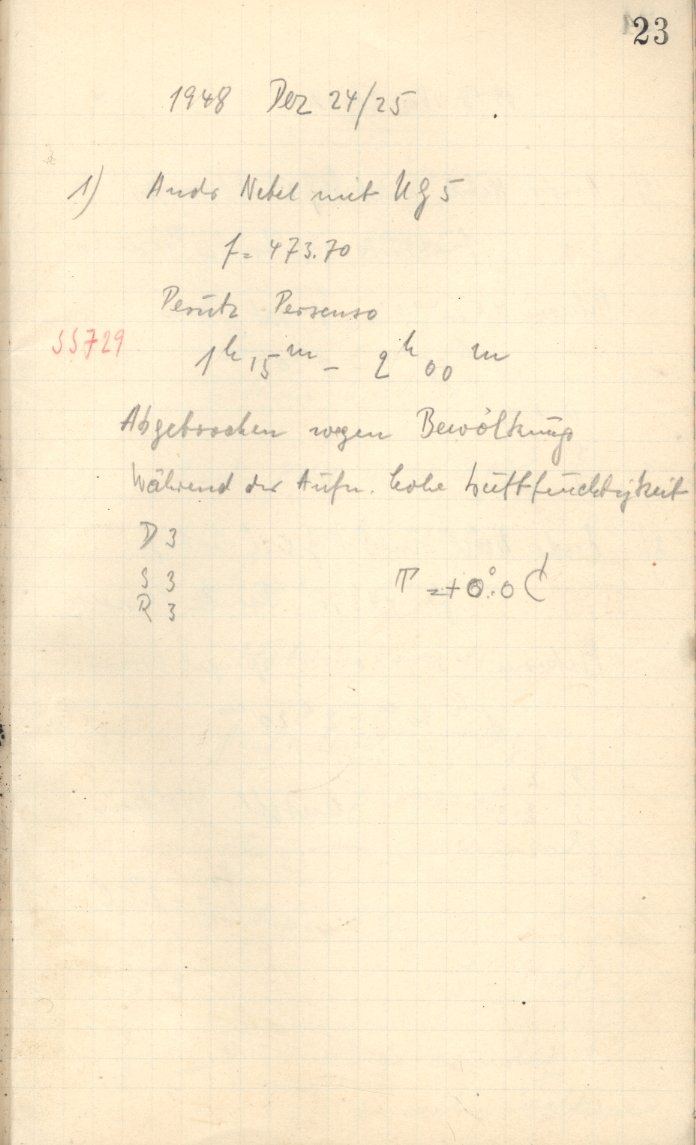 23
1948 Dez 24/25
1) Andr Nebel mit UG 5
f = 473.70
Perutz Persenso
SS729
1h 15m – 2h 00m
Abgebrochen wegen Bewölkung
Während der Aufn. hohe Luftfeuchtigkeit
D 3
S 3
R 3
T = +0°.0 C